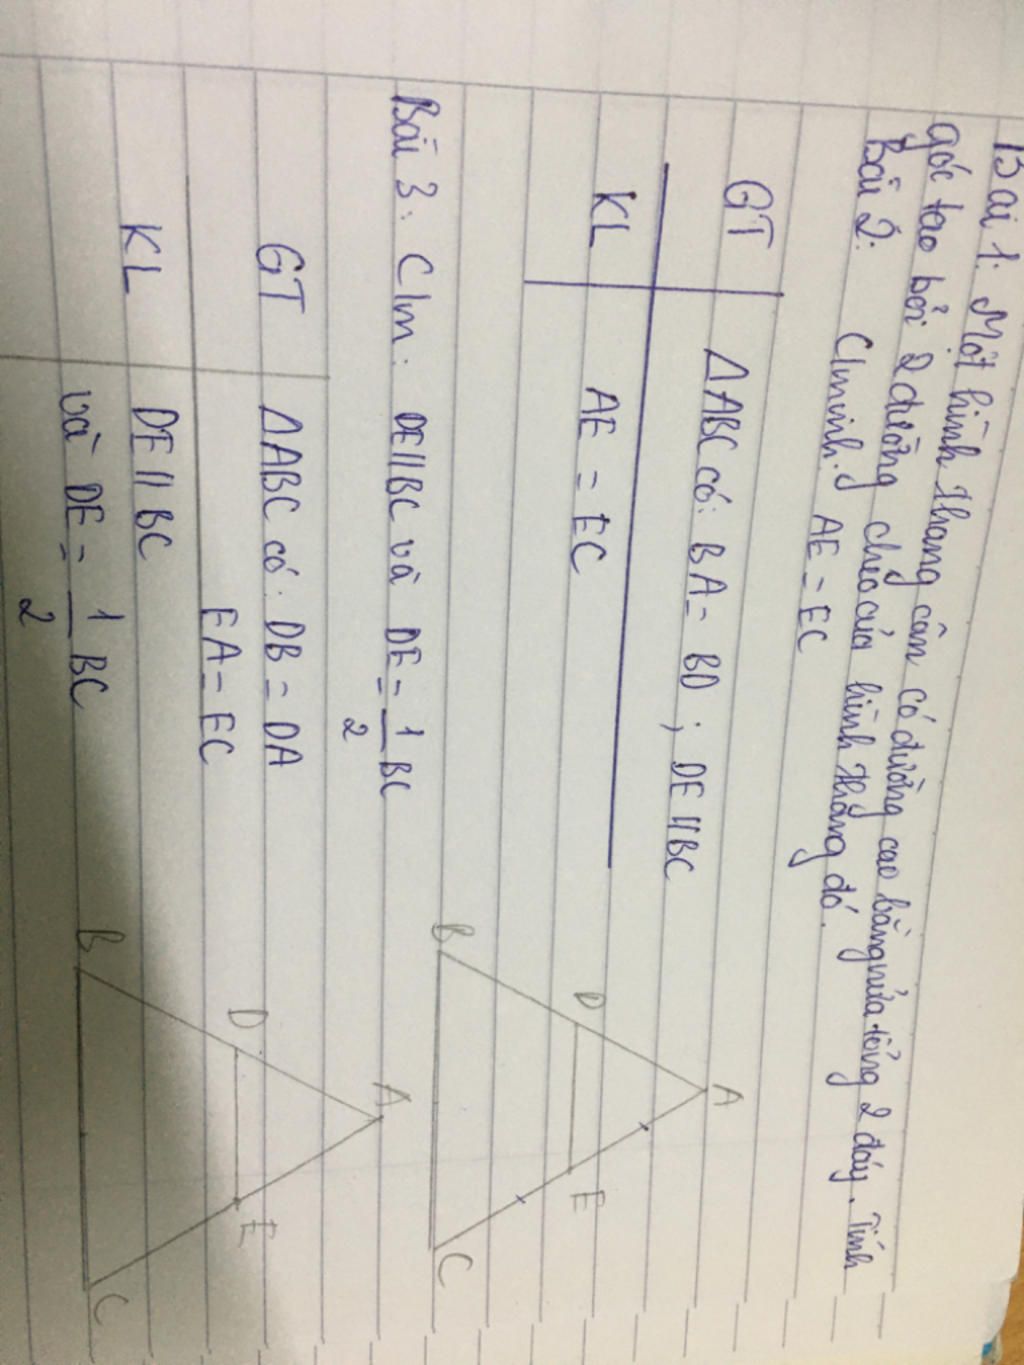 Bài 1: Một hình thang cân có đường cao bằng nửa tổng 2 đáy. Tính
góc tạo bởi 2 đường chéo của hình thang đó.
Bài 2: C/minh: AE = EC
GT ΔABC có: BA = BD ; DE // BC
KL AE = EC
A
D E
B C
Bài 3: C/m: DE // BC và DE = 1/2 BC
GT ΔABC có: DB = DA
EA = EC
KL DE // BC
và DE = 1/2 BC
A
D E
B C